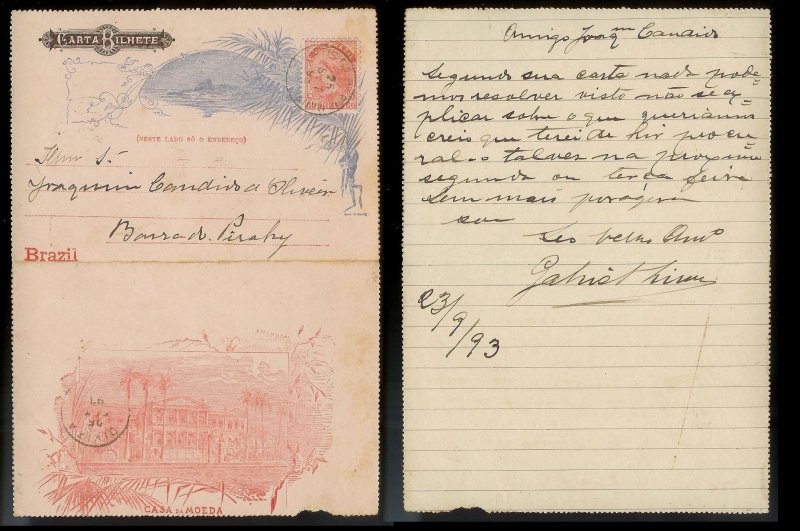 CARTA BILHETE
(NESTE LADO SÓ O ENDEREÇO)
Illmo S.
Joaquim Candido d Oliveira
Barra do Pirahy
Brazil
CASA DA MOEDA
Amigo Joaqm Candido
Segundo sua carta nada pode-
mos resolver visto não se ex-
plicar sobre o que queriamos
creio que terei de hir procu-
ral-o talvez na proxima
segunda ou terça feira
Sem mais
sou
Seo velho Amo
Gabriel
23/9/93